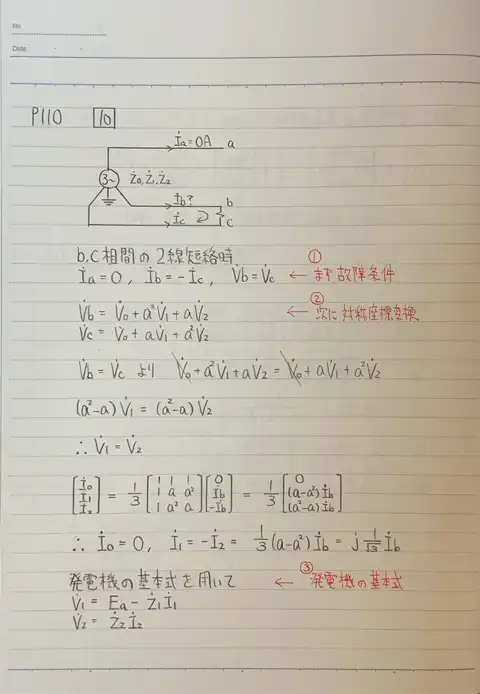 No.
Date
P110 10
İa=0A a
3~ Ż0,Ż1,Ż2
İb? b
İc c
b,c相間の2線短絡時 ①
İa=0, İb=-İc, V̇b=V̇c ← まず故障条件
②
V̇b = V̇0+a²V̇1+aV̇2 ← 次に対称座標変換
V̇c = V̇0+aV̇1+a²V̇2
V̇b=V̇c より V̇0+a²V̇1+aV̇2=V̇0+aV̇1+a²V̇2
(a²-a)V̇1=(a²-a)V̇2
∴ V̇1=V̇2
[İ0 İ1 İ2] = 1/3 [1 1 1 1 a a² 1 a² a] [0 İb -İb] = 1/3 [0 (a-a²)İb (a²-a)İb]
∴ İ0=0, İ1=-İ2=1/3(a-a²)İb=j1/√3 İb
③
発電機の基本式を用いて ← 発電機の基本式
V̇1=Ėa-Ż1İ1
V̇2= Ż2İ2